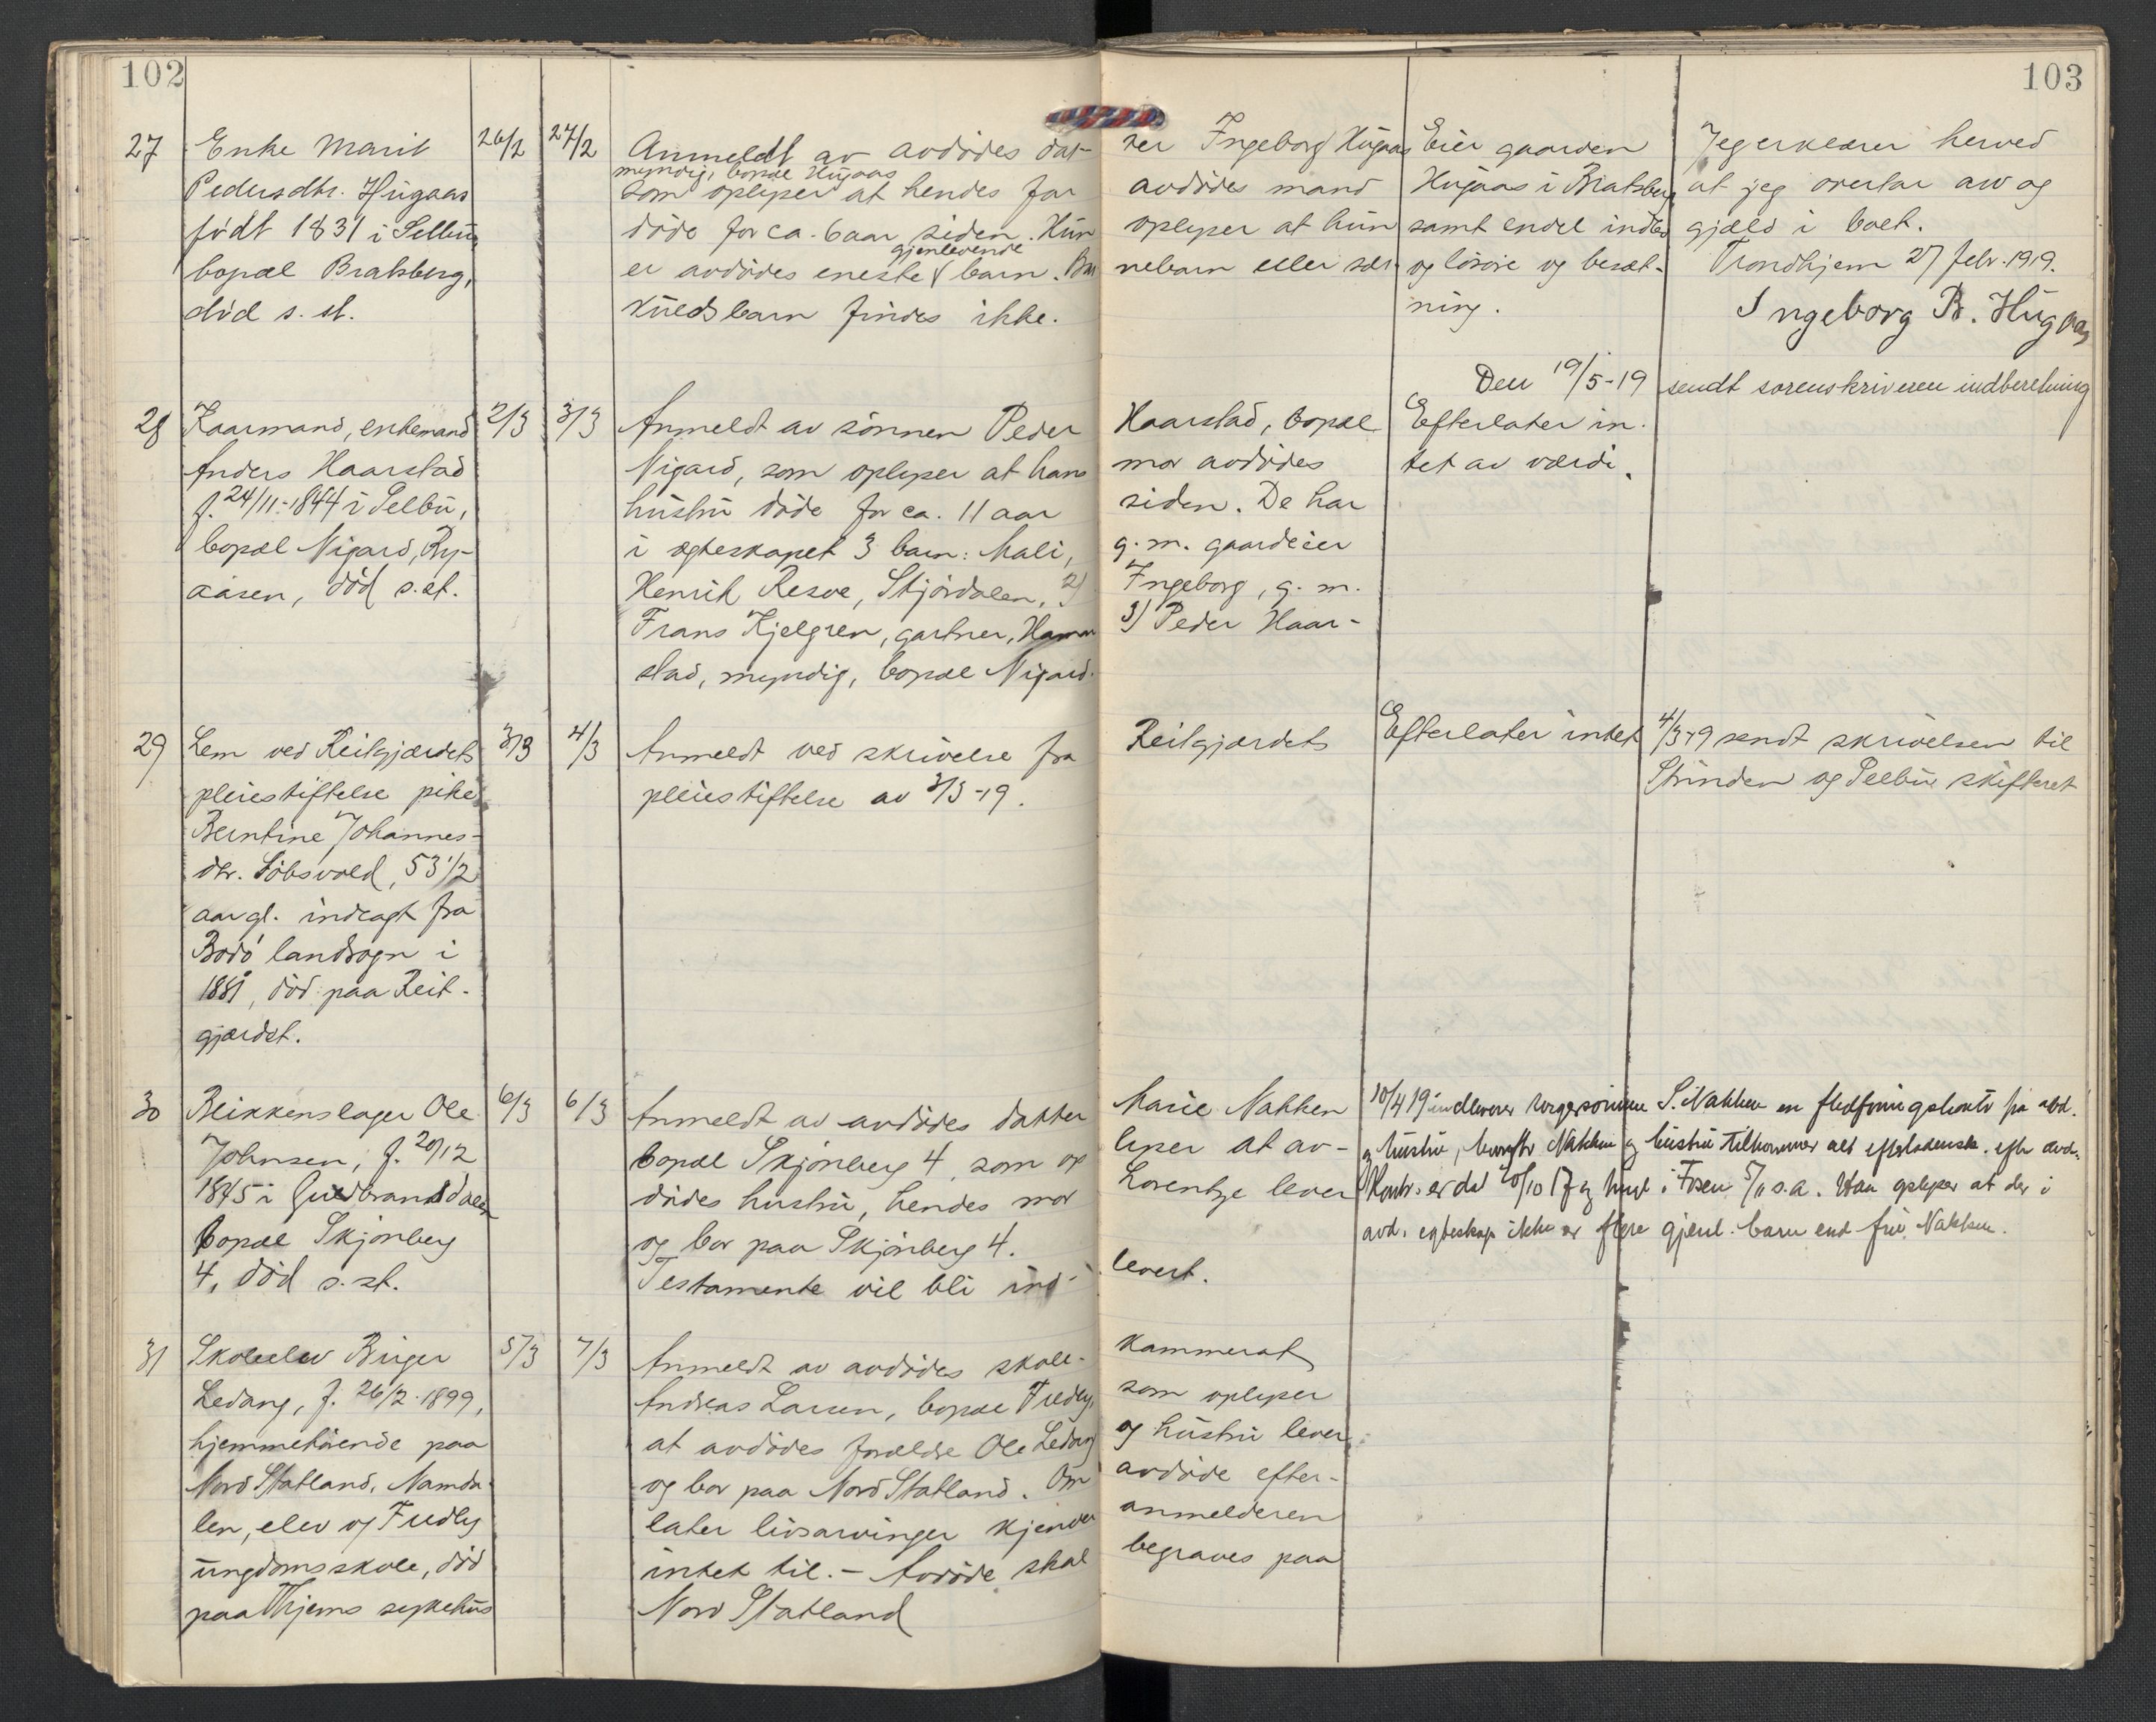 102
103
27 Enke Marit 26/2 27/2 Anmeldt av avdødes dat- ter Ingeborg Hugaas Eier gaarden Jeg erklærer herved
myndig, bopæl Hugaas
Pedersdtr. Hugaas som oplyser at hendes far avdødes mand Hugaas i Bratsberg at jeg overtar arv og
født 1831 i Selbu, døde for ca. 6 aar siden. Hun oplyser at hun samt endel indbo gjæld i boet.
gjenlevende
bopæl Bratsberg, er avdødes eneste barn. Bar nebarn eller sær- og løsøre og besæt- Trondhjem 27 febr. 1919.
død s. st. kuldsbarn findes ikke. ning. Ingeborg B. Hugaas
Den 19/5-19 sendt sorenskriveren indberetning
28 Kaarmand, enkemand 2/3 3/3 Anmeldt av sønnen Peder Haarstad, bopæl Efterlater in-
Anders Haarstad Nigard, som oplyser at hans mor avdødes tet av værdi.
f. 24/11-1844 i Selbu, hustru døde for ca. 11 aar siden. De har
bopæl Nigard, Ry- i egteskapet 3 barn: Mali, g. m. gaardeier
aasen, død s. st. Henrik Resve, Stjørdalen, 2) Ingeborg, g. m.
Frans Kjelgren, gartner, Hamar 3) Peder Haar-
stad, myndig, bopæl Nigard.
29 Lem ved Reitgjærdets 3/3 4/3 Anmeldt ved skrivelse fra Reitgjærdets Efterlater intet 4/3-19 sendt skrivelsen til
pleiestiftelse pike pleiestiftelse av 3/3-19. Strinden og Selbu skifteret
Berntine Johannes-
dtr. Løbsvold, 53 1/2
aar gl. indlagt fra
Bodø landsogn i
1881, død paa Reit-
gjærdet.
30 Blikkenslager Ole 6/3 6/3 Anmeldt av avdødes datter Marie Nakken 10/4 19 indleverer svigersønnen S. Nakken en fledføringskontr fra avd.
Johnsen, f. 20/12 bopæl Skjønberg 4, som op lyser at av- og hustru, hvorefter Nakken og hustru tilkommer alt efterladensk. efter avd.
1845 i Gudbrandsdalen dødes hustru, hendes mor Lorentze lever Kontr. er dat 20/10 17 og tingl i Fosen 5/11 s.a. Han oplyser at der i
bopæl Skjønberg og bor paa Skjønberg 4. avd. egteskap ikke er flere gjenl. barn end fru Nakken.
4, død s. st. Testamente vil bli ind- levert.
31 Skoleelev Birger 5/3 7/3 Anmeldt av avdødes skole- kammerat
Ledang, f. 26/2-1899, Andreas Larsen, bopæl Fredly, som oplyser
hjemmehørende paa at avdødes forældre Ole Ledang og hustru lever
Nord Statland, Namda- og bor paa Nord Statland. Om avdøde efter-
len, elev og Fredly later livsarvinger kjender anmelderen
ungdomsskole, død intet til. - Avdøde skal begraves paa
paa Thjems sykehus Nord Statland